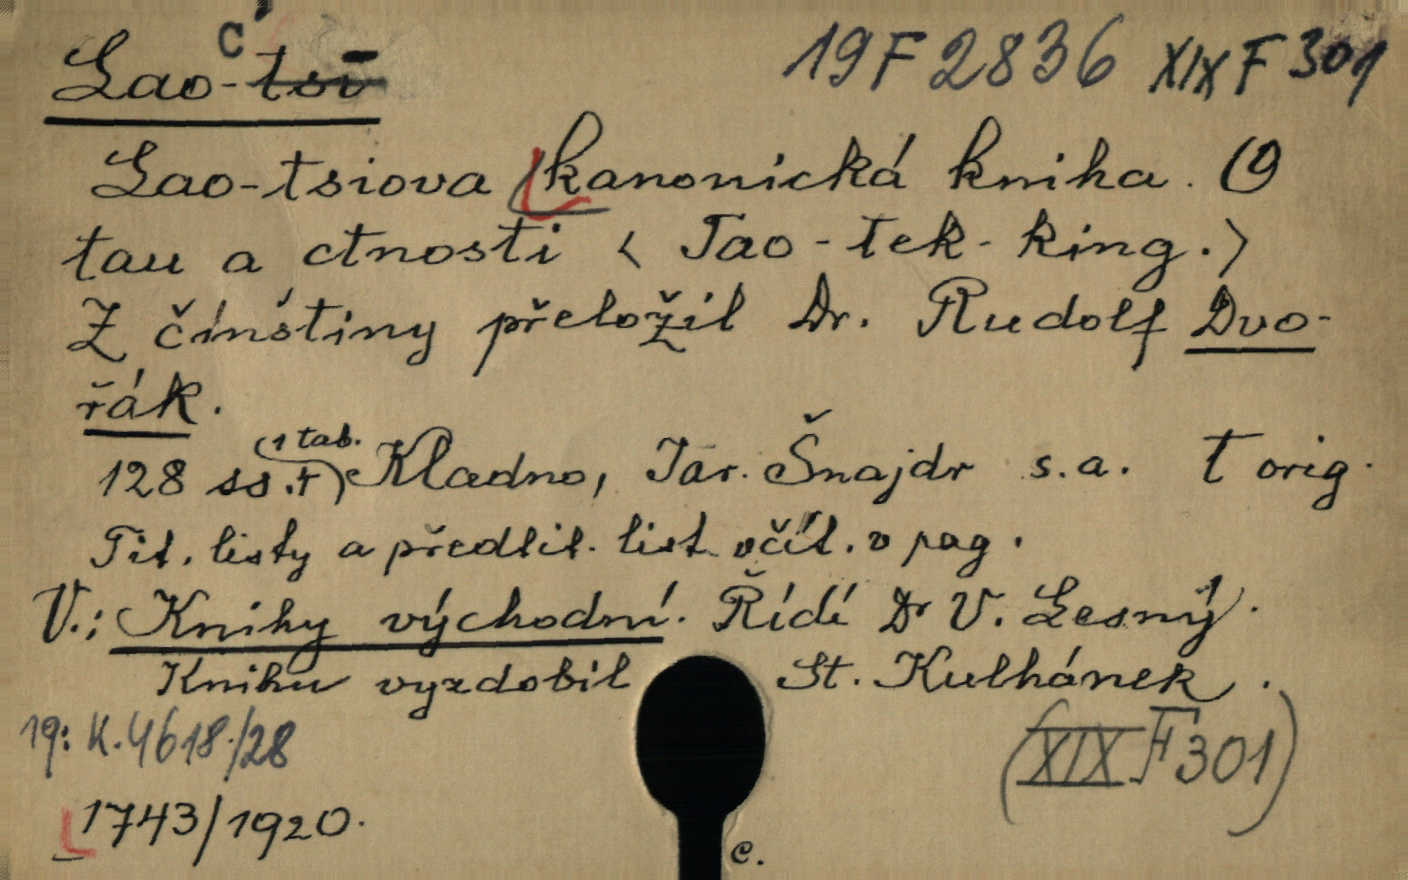 Lao-tsi C 19F2836 XIX F 301
Lao-tsiova kanonická kniha. O
tau a ctnosti < Tao-tek-king.>
Z čínštiny přeložil Dr. Rudolf Dvo-
řák.
128 ss.+ (1 tab.) Kladno, Jar. Šnajdr s.a. t orig.
Tit. listy a předtit. list včít. v pag.
V.: Knihy východní. Řídí Dr V. Lesný.
Knihu vyzdobil St. Kulhánek.
19: K.4618/28 (XIX F 301)
1743/1920.
c.